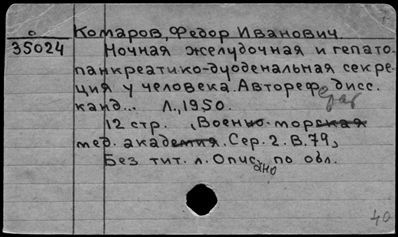 о Комаров, Федор Иванович
35024 Ночная желудочная и гепато-
панкреатико-дуоденальная секре-
ция у человека. Автореферат дисс.
канд... Л., 1950.
12 стр. (Военно-морская
мед. академия. Сер. 2. В. 79)
Без тит. л. Описано по обл.
40